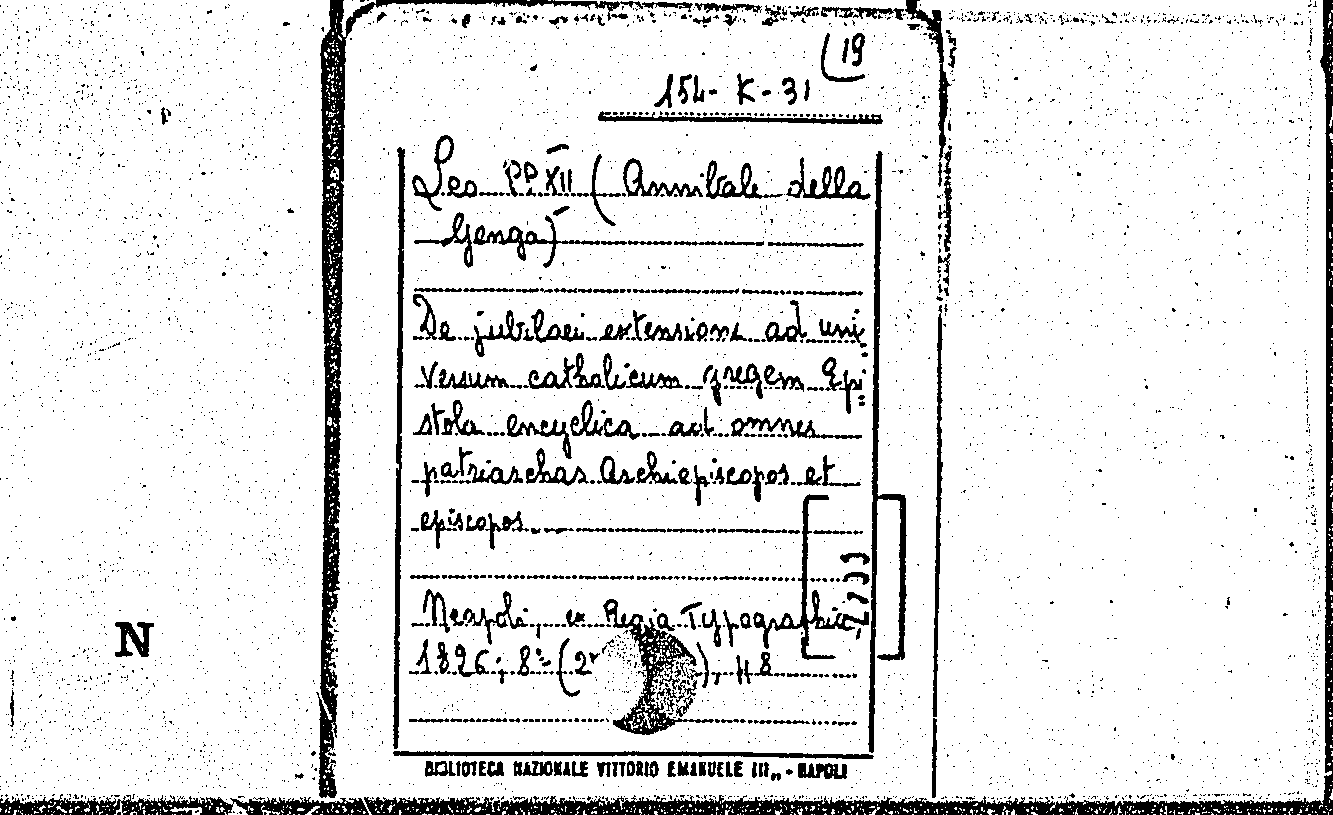 (19
154-K-31
Leo PP. XII (Annibale della
Genga)
De jubilaei extensione ad uni=
versum catholicum gregem Epi=
stola encyclica ad omnes
patriarchas Archiepiscopos et
episcopos.
Neapoli, ex Regia Typographia,
1826; 8° (2 ), 48
N
BIBLIOTECA NAZIONALE VITTORIO EMANUELE III„ - NAPOLI